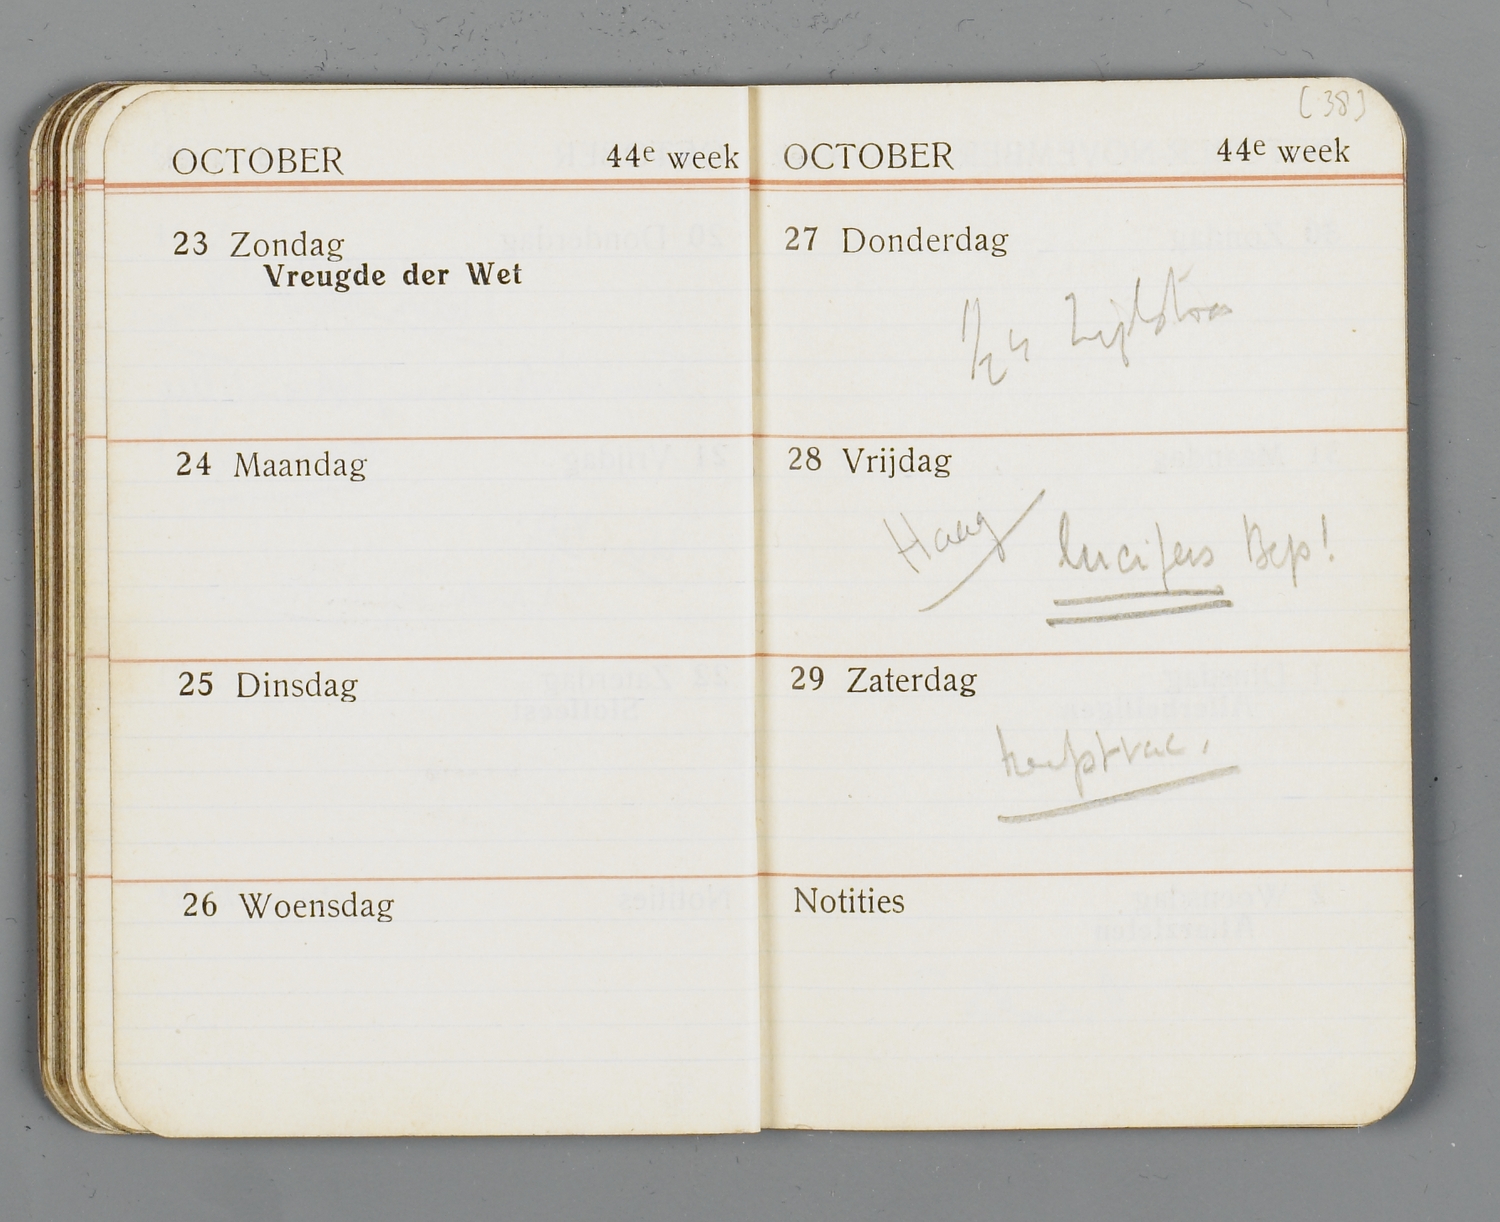 OCTOBER 44e week
23 Zondag
Vreugde der Wet
24 Maandag
25 Dinsdag
26 Woensdag
[38]
OCTOBER 44e week
27 Donderdag
1/2 4 Zijlstra
28 Vrijdag
Haag lucifers Bep!
29 Zaterdag
Notities